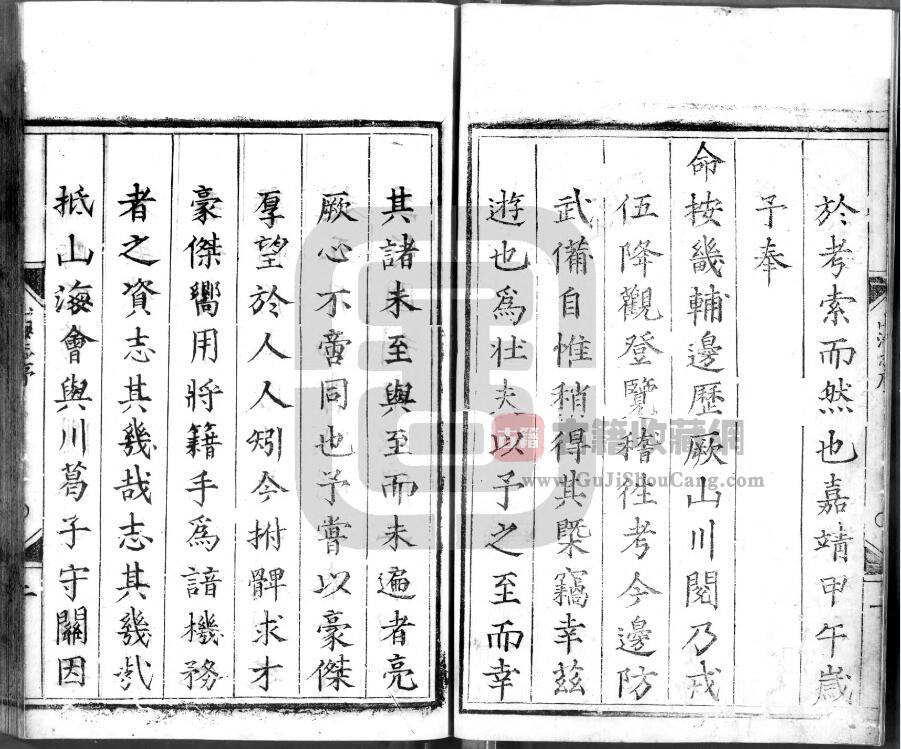 於考索而然也嘉靖甲午歲
予奉
命按畿輔邊歷厥山川閱乃戎
伍降觀登覽稽往考今邊防
武備自惟稍得其槩竊幸茲
遊也爲壯夫以予之至而幸
其諸未至與至而未遍者亮
厥心不啻同也予嘗以豪傑
厚望於人人矧今拊髀求才
豪傑嚮用將籍手爲諳機務
者之資志其幾哉志其幾哉
抵山海會與川葛子守關因
山海志序
古籍
古籍收藏網
www.GuJiShouCang.com